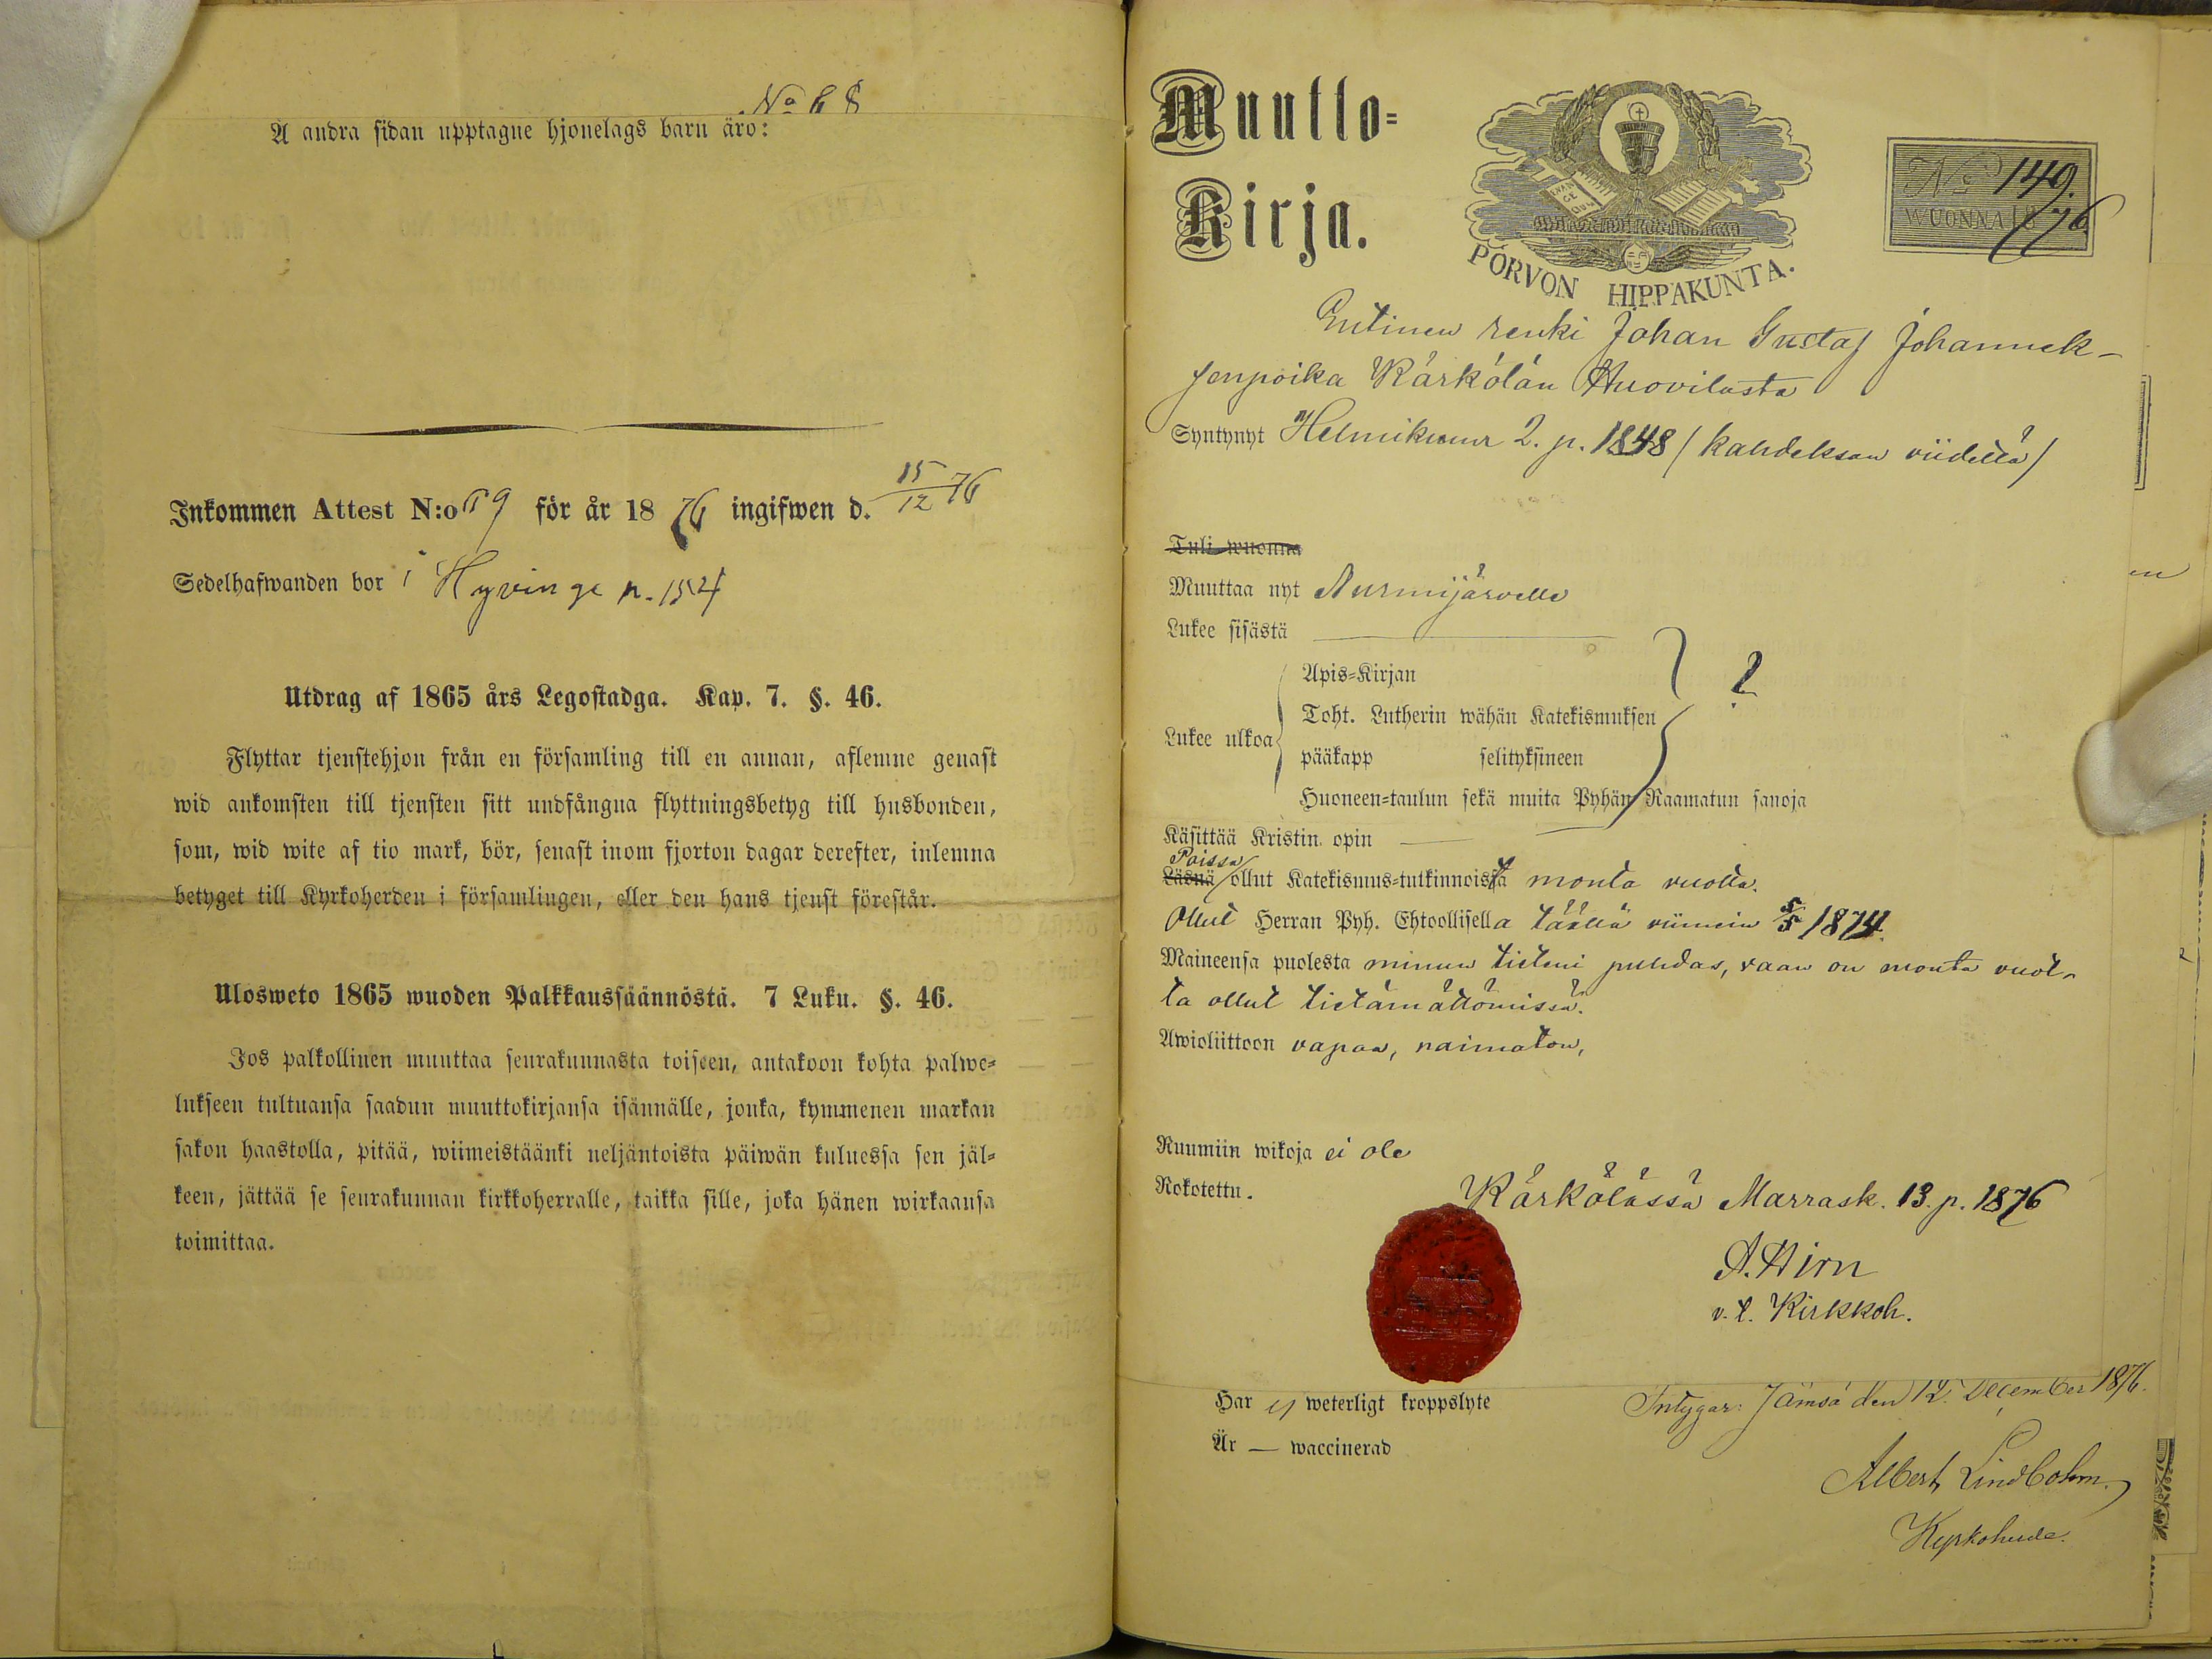 No 68
Å andra sidan upptagne hjonelags barn äro:
Inkommen Attest N:o 69 för år 1876 ingifwen d. 15/12 76
Sedelhafwanden bor i Hyvinge n. 154
Utdrag af 1865 års Legostadga. Kap. 7. §. 46.
Flyttar tjenstehjon från en församling till en annan, aflemne genast
wid ankomsten till tjensten sitt undfångna flyttningsbetyg till husbonden,
som, wid wite af tio mark, bör, senast inom fjorton dagar derefter, inlemna
betyget till Kyrkoherden i församlingen, eller den hans tjenst förestår.
Ulosweto 1865 wuoden Palkkaussäännöstä. 7 Luku. §. 46.
Jos palkollinen muuttaa seurakunnasta toiseen, antakoon kohta palwe=
lukseen tultuansa saadun muuttokirjansa isännälle, jonka, kymmenen markan
sakon haastolla, pitää, wiimeistäänki neljäntoista päiwän kuluessa sen jäl=
keen, jättää se seurakunnan kirkkoherralle, taikka sille, joka hänen wirkaansa
toimittaa.
Muutto=
Kirja.
PORVON HIPPAKUNTA.
No 149.
WUONNA 1876.
Entinen renki Johan Gustaf Johannek-
senpoika Kärkölän Huovilasta
Syntynyt Helmikuun 2. p. 1848 (kahdeksan viidettä)
Tuli wuonna
Muuttaa nyt Nurmijärvelle
Lukee sisästä
Apis=Kirjan
Toht. Lutherin wähän Katekismuksen
Lukee ulkoa
pääkapp selityksineen
?
Huoneen=taulun sekä muita Pyhän Raamatun sanoja
Käsittää Kristin. opin
Poissa
Läsnä ollut Katekismus=tutkinnoista monta vuotta.
Ollut Herran Pyh. Ehtoollisella täällä viimein 5/5 1874.
Maineensa puolesta minun tieteni puhdas, vaan on monta vuot-
ta ollut tietämättömissä.
Awioliittoon vapaa, naimaton,
Ruumiin wikoja ei ole
Rokotettu.
Kärkölässä Marrask. 13. p. 1876
A. Hirn
v. t. Kirkkoh.
Har ej weterligt kroppslyte
Är — waccinerad
Intygar: Jämsä den 12. December 1876.
Albert Lindbohm.
Kyrkoherde.